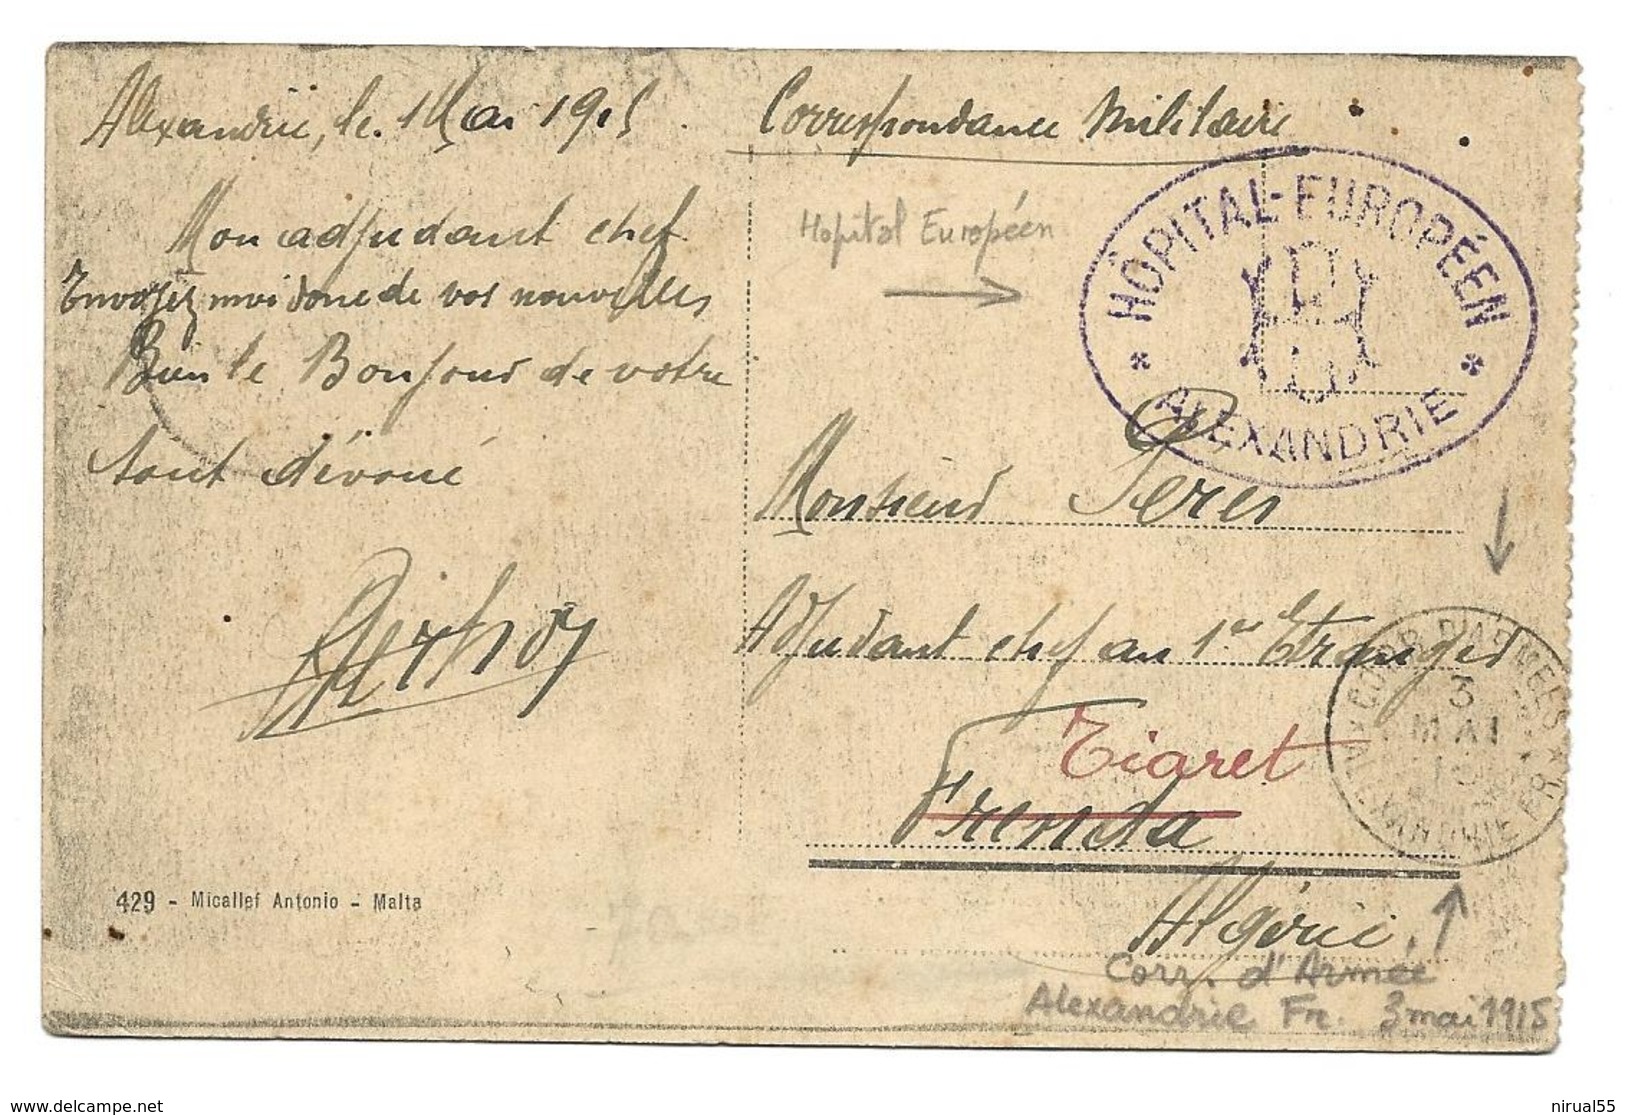 Alexandrie, le 1 Mai 1915
Mon adjudant chef
Envoyez moi donc de vos nouvelles
Bien le Bonjour de votre
tout dévoué
429 - Micallef Antonio - Malta
Correspondance Militaire
Hopital Européen
HÔPITAL-EUROPÉEN
ALEXANDRIE
Monsieur Peres
Adjudant chef au 1er Etranger
Tiaret
Frenda
Algérie
CORR. D'ARMEES
3
MAI
ALEXANDRIE FR.
Corr. d'Armée
Alexandrie Fr. 3 mai 1915
delcampe.net
nirual55